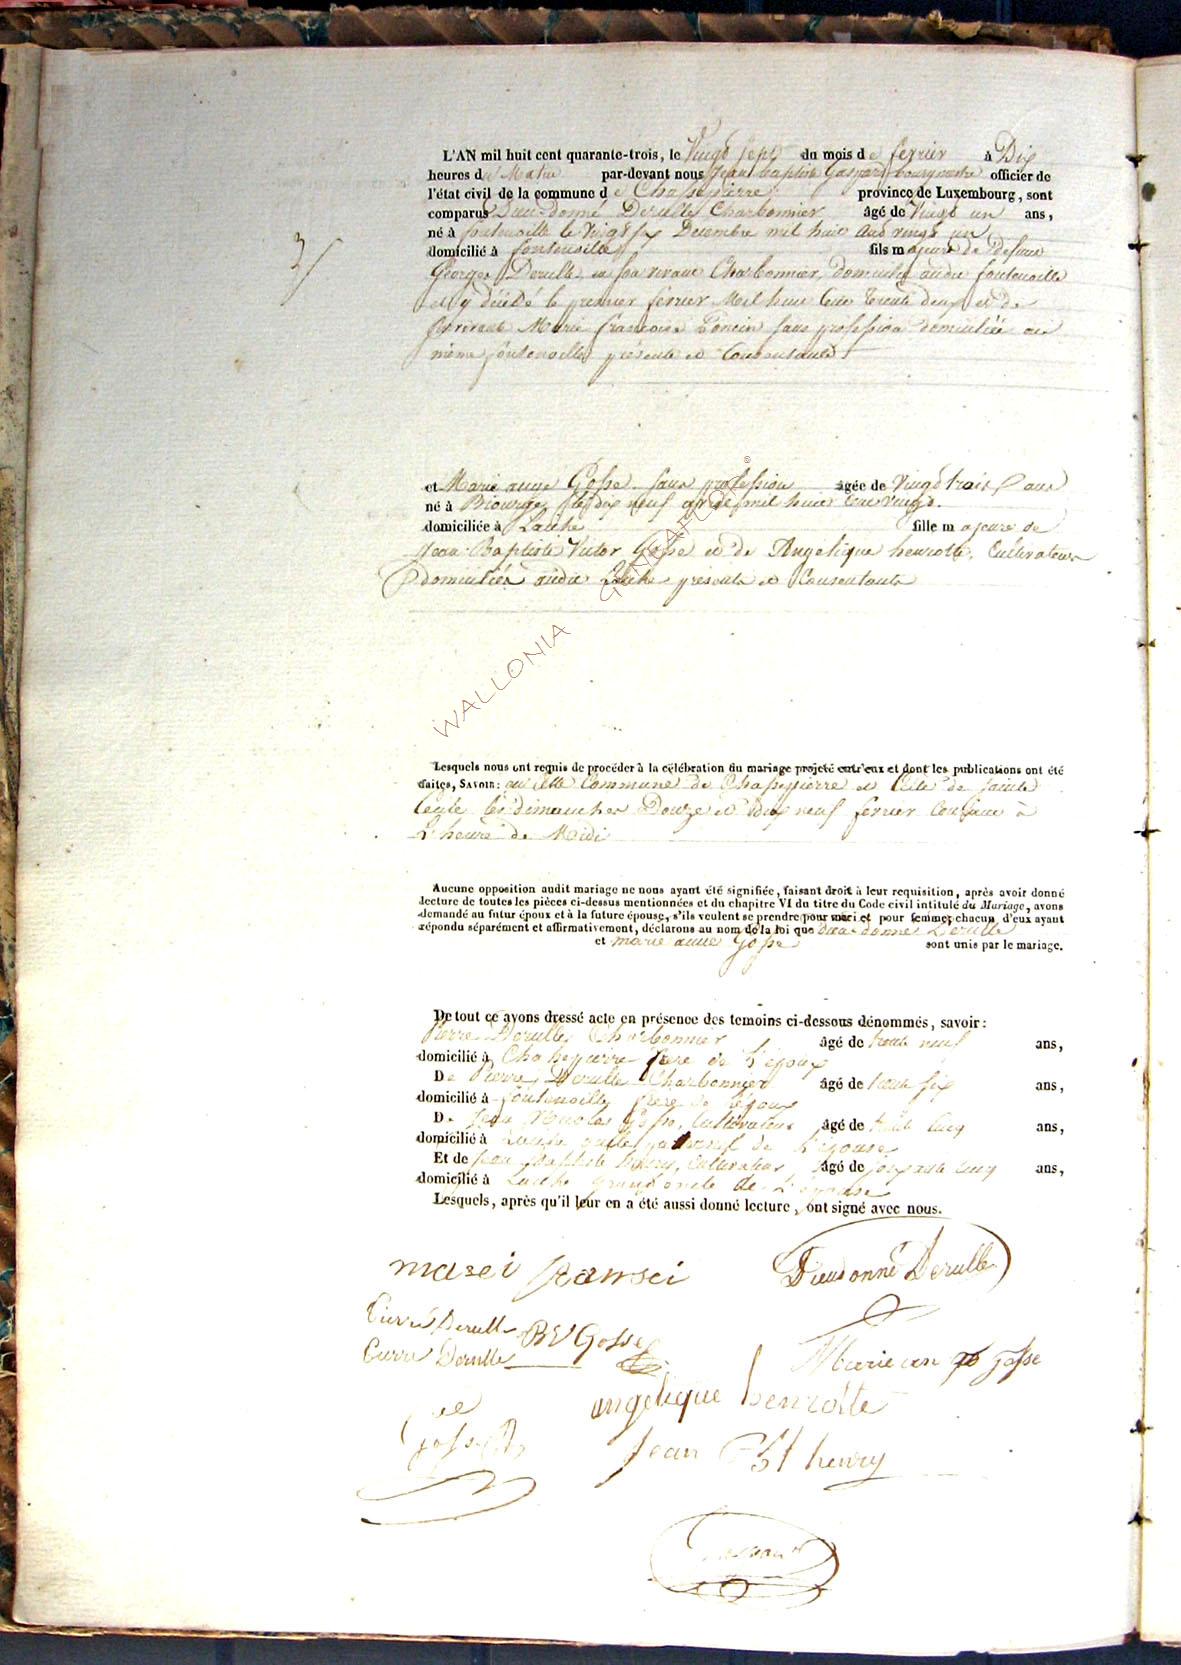 L'AN mil huit cent quarante-trois, le Vingt Sept du mois de fevrier à Dix
heures du Matin par-devant nous Jean baptiste Gaspard bourgmestre officier de
l'état civil de la commune de Chassepierre province de Luxembourg, sont
comparus Dieu-donné Derulle Charbonnier âgé de Vingt un ans,
né à fontenoille le vingt six Decembre mil huit cent vingt un
domicilié à fontenoille fils majeure de Defunt
Georges Derulle en son vivant Charbonnier, domicilié audit fontenoille
et y décédé le premier fevrier Mil huit Cent trente deux et de
Survivante Marie françoise Poncin sans profession domiciliée au
même fontenoille présente et Consentante
3/
et Marie anne Gosse sans profession âgée de Vingt trois ans
né à Biourge, le dix neuf mil huit Cent vingt.
domiciliée à Laiche fille majeure de
Jean-Baptiste Victor Gosse et de Angelique henrotte, Cultivateurs
domiciliés audit Laiche présents et Consentants
WALLONIA GENEAFOTO ©
Lesquels nous ont requis de procéder à la célébration du mariage projeté entr'eux et dont les publications ont été
faites, SAVOIR: en Cette Commune de Chassepierre et Celle de Sainte
Cecile les dimanches Douze et dix neuf fevrier Courant à
L'heure de Midi
Aucune opposition audit mariage ne nous ayant été signifiée, faisant droit à leur requisition, après avoir donné
lecture de toutes les pièces ci-dessus mentionnées et du chapitre VI du titre du Code civil intitulé du Mariage, avons
demandé au futur époux et à la future épouse, s'ils veulent se prendre pour mari et pour femme; chacun d'eux ayant
répondu séparément et affirmativement, déclarons au nom de la loi que dieu-donné Derulle
et marie anne Gosse sont unis par le mariage.
De tout ce avons dressé acte en présence des temoins ci-dessous dénommés, savoir:
Pierre Derulle, Charbonnier âgé de trente neuf ans,
domicilié à Chassepierre frere de L'epoux
De Pierre Derulle Charbonnier âgé de trente six ans,
domicilié à fontenoille frere de L'époux
De Jean Nicolas Gosse, Cultivateur âgé de trente Cinq ans,
domicilié à Laiche oncle paternel de L'épouse
Et de Jean Baptiste henry, Cultivateur âgé de soixante Cinq ans,
domicilié à Laiche grand oncle de L'épouse
Lesquels, après qu'il leur en a été aussi donné lecture, ont signé avec nous.
Dieudonné Derulle
Pierre Derulle Bt Vr Gosse
Pierre Derulle
Marie an Gosse
angelique henrotte
Jean Bt henry